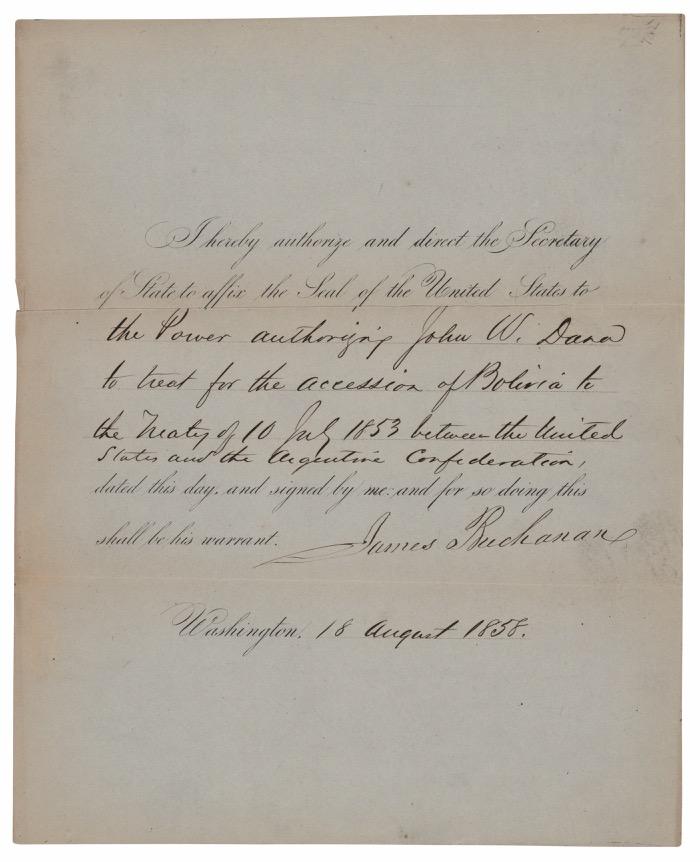 I hereby authorize and direct the Secretary
of State to affix the Seal of the United States to
the Power authorizing John W. Dana
to treat for the accession of Bolivia to
the Treaty of 10 July 1853 between the United
States and the Argentine Confederation,
dated this day, and signed by me: and for so doing this
shall be his warrant. James Buchanan
Washington, 18 August 1858.